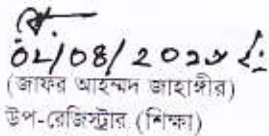 ০৮/০৪/২০২৮ইং
(জাফর আহম্মদ জাহাঙ্গীর)
উপ-রেজিস্ট্রার (শিক্ষা)